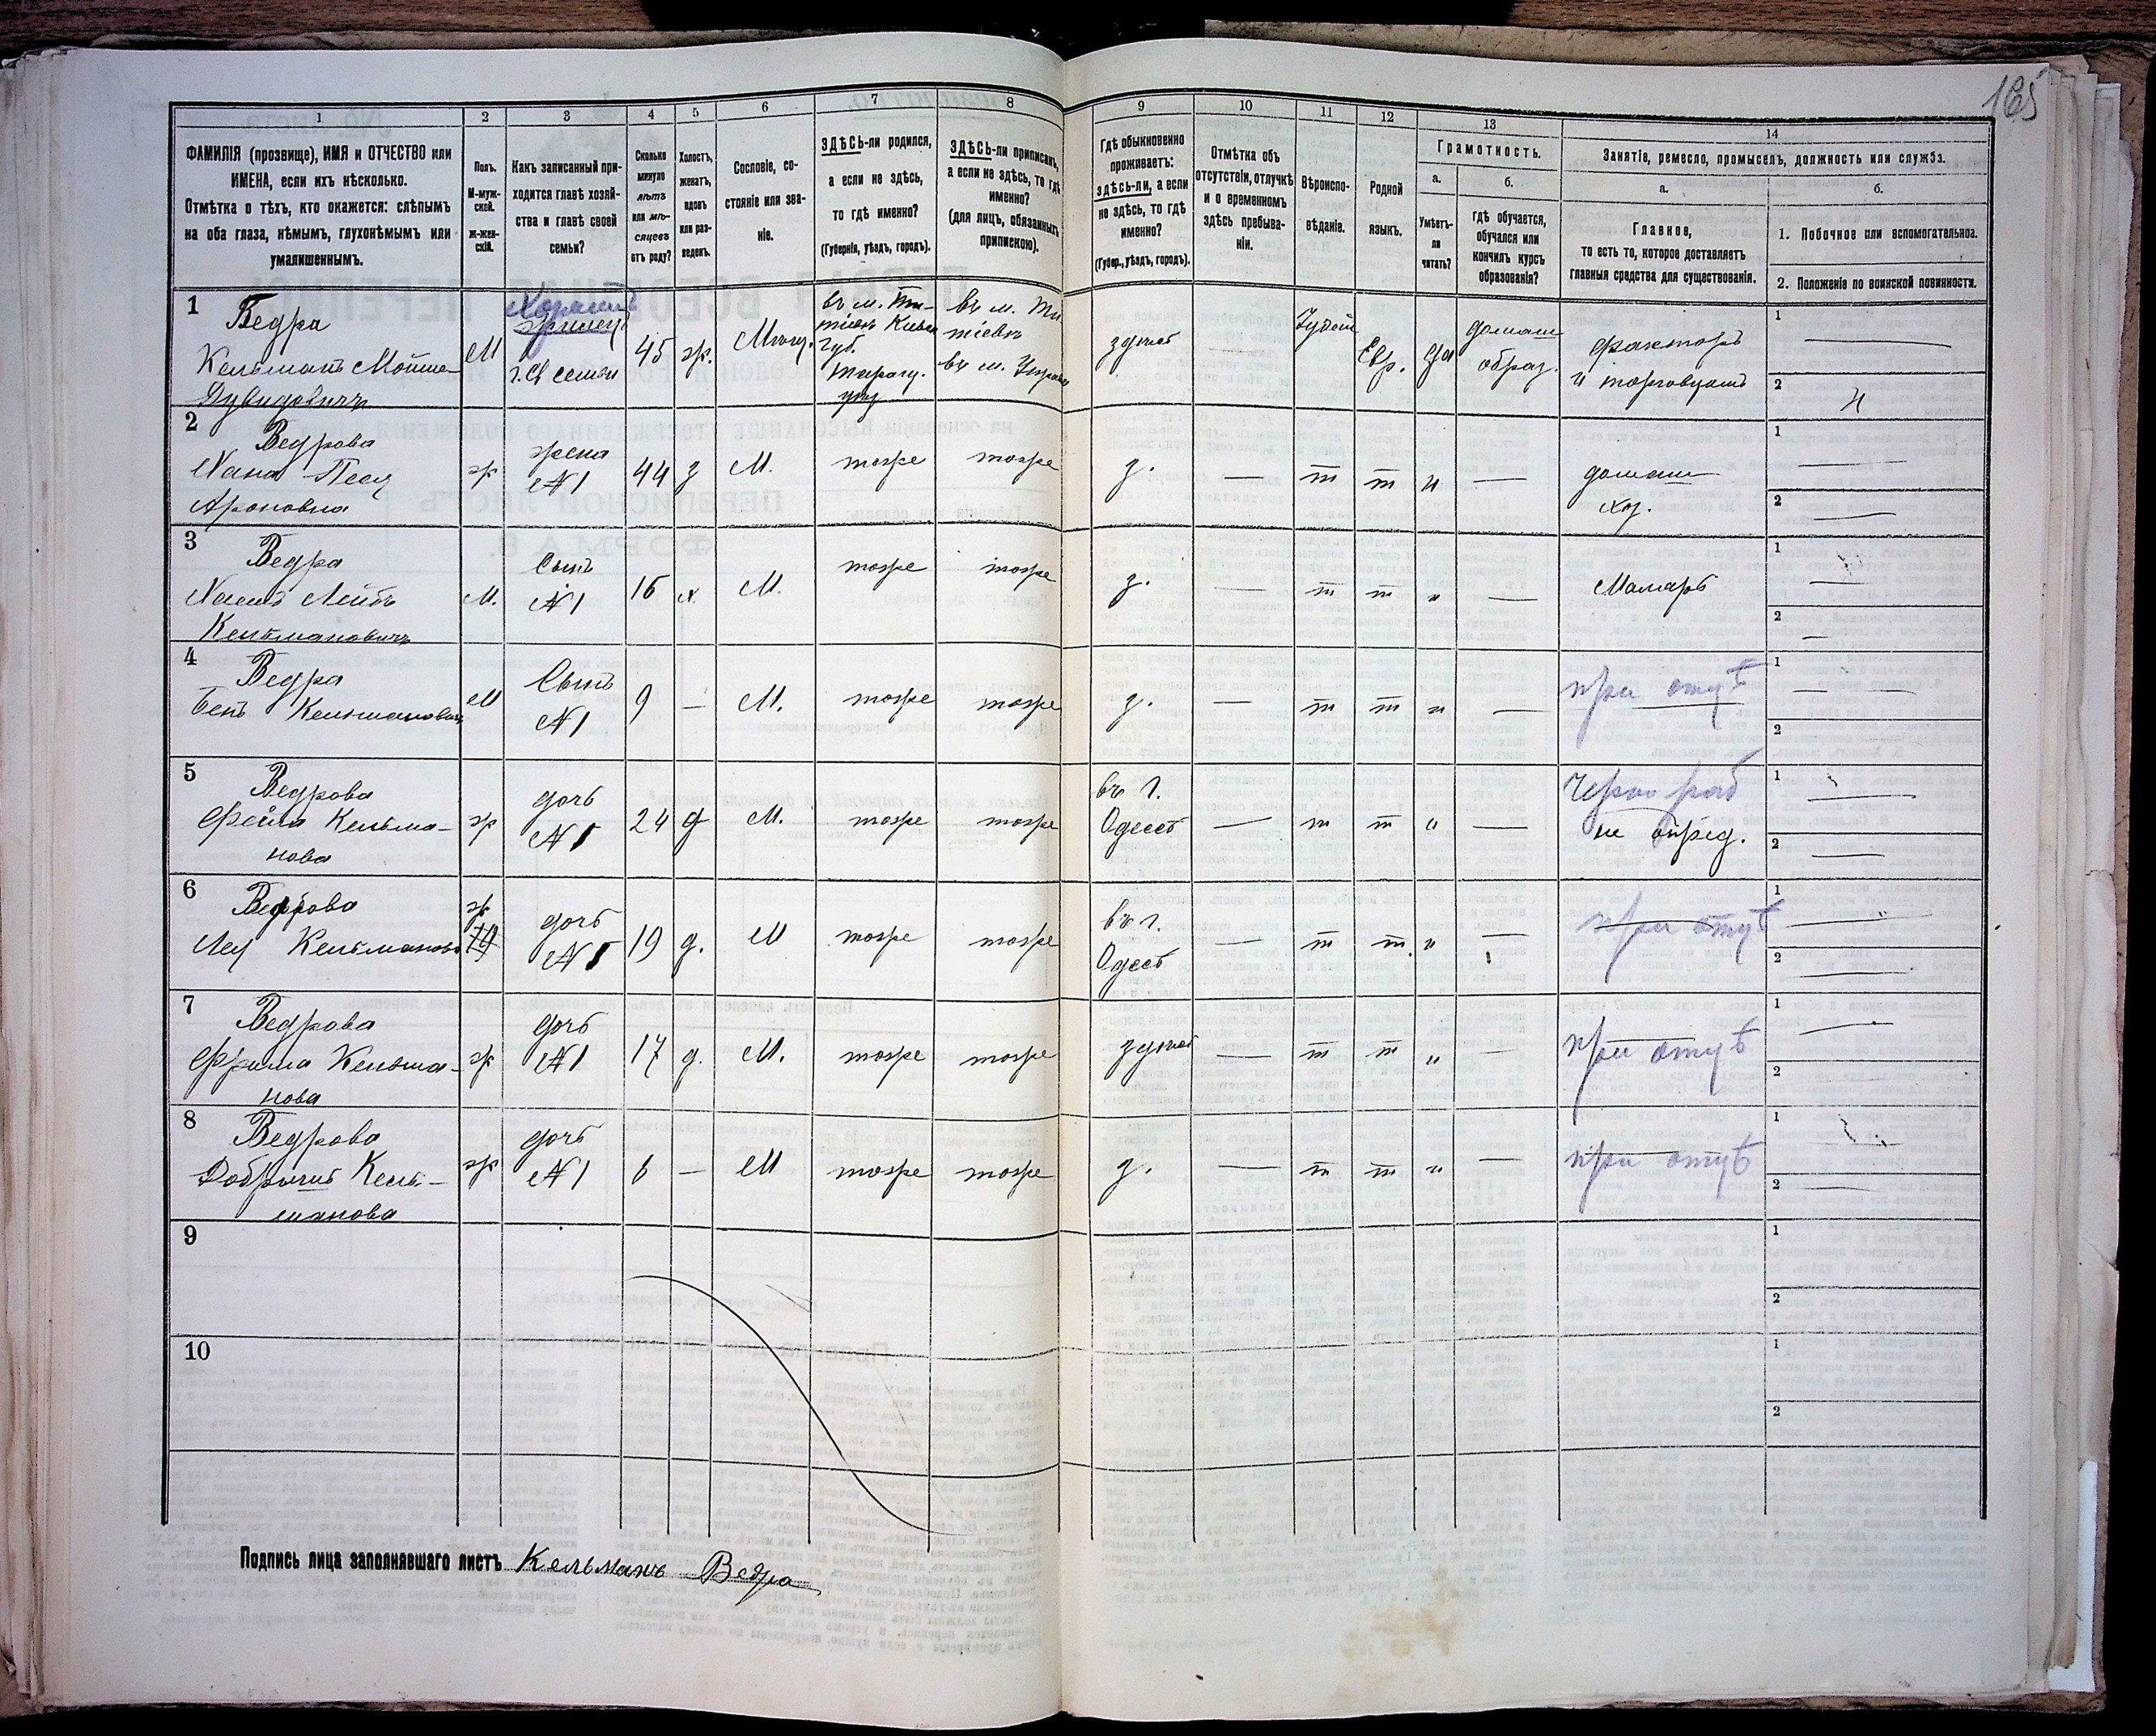 165
1
2
3
4
5
6
7
8
9
10
11
12
13
14
ФАМИЛІЯ (прозвище), ИМЯ и ОТЧЕСТВО или
ИМЕНА, если ихъ нѣсколько.
Отмѣтка о тѣхъ, кто окажется: слѣпымъ
на оба глаза, нѣмымъ, глухонѣмымъ или
умалишеннымъ.
Полъ.
М-муж-
ской.
ж-жен-
скій.
Какъ записанный при-
ходится главѣ хозяй-
ства и главѣ своей
семьи?
Сколько
минуло
лѣтъ
или мѣ-
сяцевъ
отъ роду?
Холостъ,
женатъ,
вдовъ
или раз-
веденъ.
Сословіе, со-
стояніе или зва-
ніе.
ЗДѢСЬ-ли родился,
а если не здѣсь,
то гдѣ именно?
(Губернія, уѣздъ, городъ).
ЗДѢСЬ-ли приписанъ,
а если не здѣсь, то гдѣ
именно?
(для лицъ, обязанныхъ
припискою).
Гдѣ обыкновенно
проживаетъ:
здѣсь-ли, а если
не здѣсь, то гдѣ
именно?
(Губер., уѣздъ, городъ).
Отмѣтка объ
отсутствіи, отлучкѣ
и о временномъ
здѣсь пребыва-
ніи.
Вѣроиспо-
вѣданіе.
Родной
языкъ.
Грамотность.
а.
Умѣетъ-
ли
читать?
б.
гдѣ обучается,
обучался или
кончилъ курсъ
образованія?
Занятіе, ремесло, промыселъ, должность или служба.
а.
Главное,
то есть то, которое доставляетъ
главныя средства для существованія.
б.
1. Побочное или вспомогательное.
2. Положеніе по воинской повинности.
1
Ведра
Кельманъ Мойше-
Дувидовичъ
М
г. семьи
45
ж.
Мѣщ.
въ м.
Кіевск
Губ.
Таращ.
уѣз
въ м.
тіевкѣ
въ м.
здѣсь
Іудей
Евр.
да
домаш
образ.
факторъ
и торговецъ
1
2
2
Ведрова
Хана Песя
Ароновна
ж
жена
№1
44
з
М.
тоже
тоже
з.
—
т
т
н
—
домаш
хоз.
1
2
3
Ведра
Хаимъ Лейбъ
Кельмановичъ
М.
Сынъ
№1
16
х.
М.
тоже
тоже
з.
—
т
т
„
—
Маляръ
1
2
4
Ведра
Бенъ Кельмановичъ
М
Сынъ
№1
9
—
М.
тоже
тоже
з.
—
т
т
„
—
при отцѣ
1
2
5
Ведрова
Фейга Кельма-
нова
ж
дочь
№1
24
д
М.
тоже
тоже
въ г.
Одессѣ
—
т
т
„
—
Черно раб
не опред.
1
2
6
Ведрова
Лея Кельманова
ж
дочь
№1
19
д.
М
тоже
тоже
въ г.
Одесѣ
—
т
т.
„
—
при отцѣ
1
2
7
Ведрова
Фрима Кельма-
нова
ж
дочь
№1
17
д.
М.
тоже
тоже
здѣсь
—
т
т
„
—
при отцѣ
1
2
8
Ведрова
Добрышъ Кель-
манова
ж
дочь
№1
6
—
М
тоже
тоже
з.
—
т
т
„
—
при отцѣ
1
2
9
1
2
10
1
2
Подпись лица заполнявшаго листъ Кельманъ Ведра